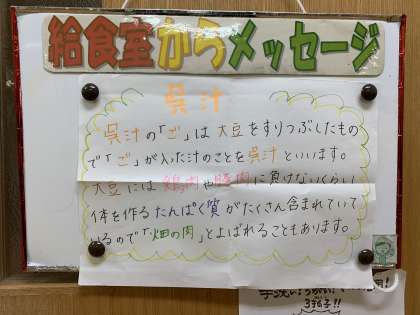 給食室からメッセージ
呉汁
「呉汁の「ご」は大豆をすりつぶしたもの
で「ご」が入った汁のことを呉汁といいます。
大豆には鶏肉や豚肉に負けないくらい
体を作るたんぱく質がたくさん含まれていて
いるので「畑の肉」とよばれることもあります。